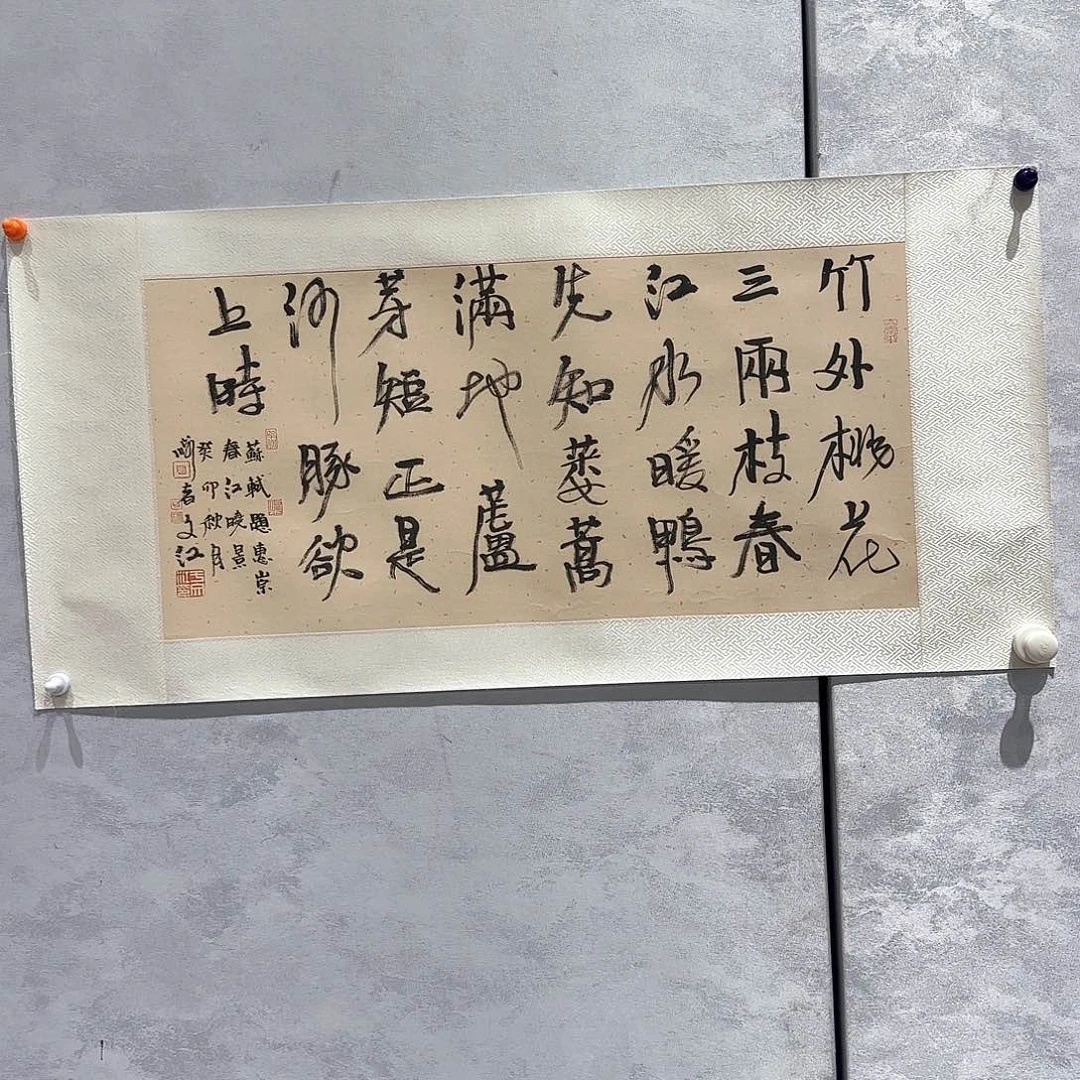 竹外桃花
三兩枝春
江水暖鴨
先知蔞蒿
滿地蘆
芽短正是
河豚欲
上時
蘇軾題惠崇
春江曉景
癸卯秋月
者文江